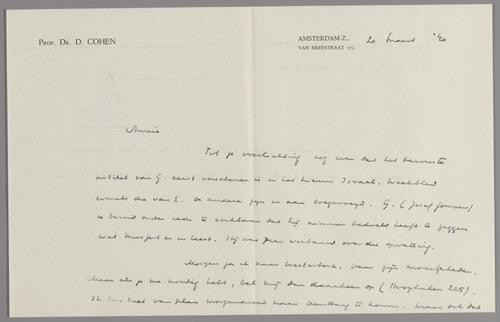 PROF. DR. D. COHEN
AMSTERDAM-Z., 20 Maart '40
VAN BREESTRAAT 172
Amice
Tot je voorlichting nog even dat het bewuste
artikel van G. eerst verschenen is in het Nieuw Israel. Weekblad
evenals die van L. De andere zijn er aan toegevoegd. G. (Josef Gompers)
is bereid onder eede te verklaren dat hij nimmer bedoeld heeft te zeggen
wat in er in leest. Hij was zeer verbaasd over die opvatting.
Morgen ga ik naar Westerbork. Daar zijn moeilijkheden.
Maar als je me noodig hebt, bel mij dan daarheen op (Hooghalen 225).
Ik ben niet van plan morgenavond naar te komen. Maar ook dat